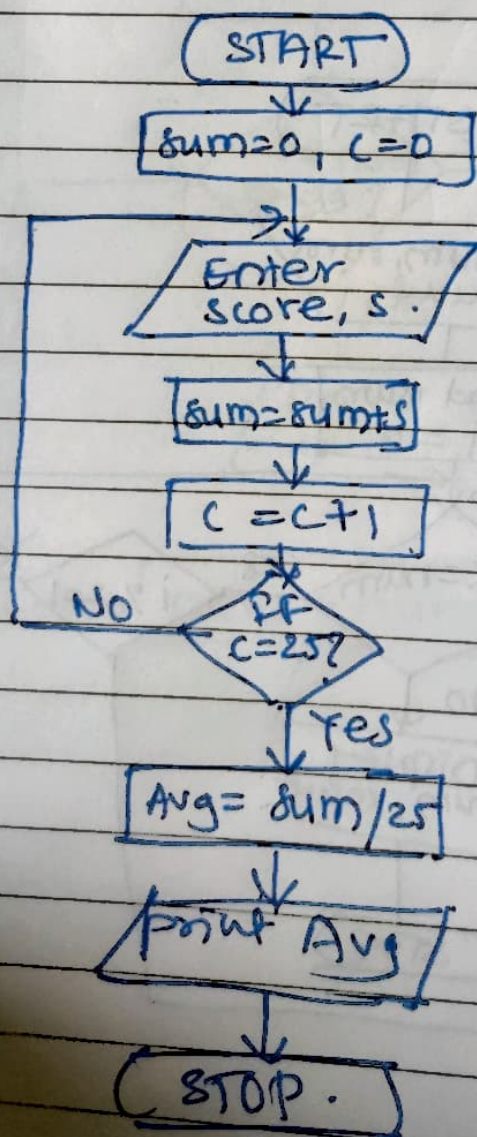 START
sum=0, c=0
Enter
score, s.
sum=sum+s
c = c+1
If
c=25?
NO
Yes
Avg= sum/25
print Avg
STOP.